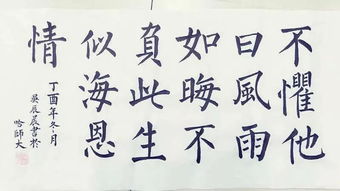 不懼他
曰風雨
如晦不
負此生
似海恩
情
丁酉年冬月
吳辰晨書於
哈師大